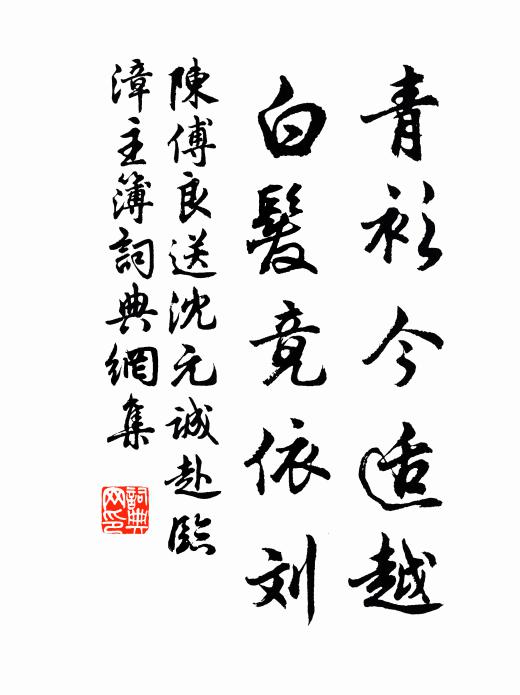 青衫今适越
白髮竟依刘
陳傅良送沈元誠赴臨
漳主簿詞典網集
詞典
网印